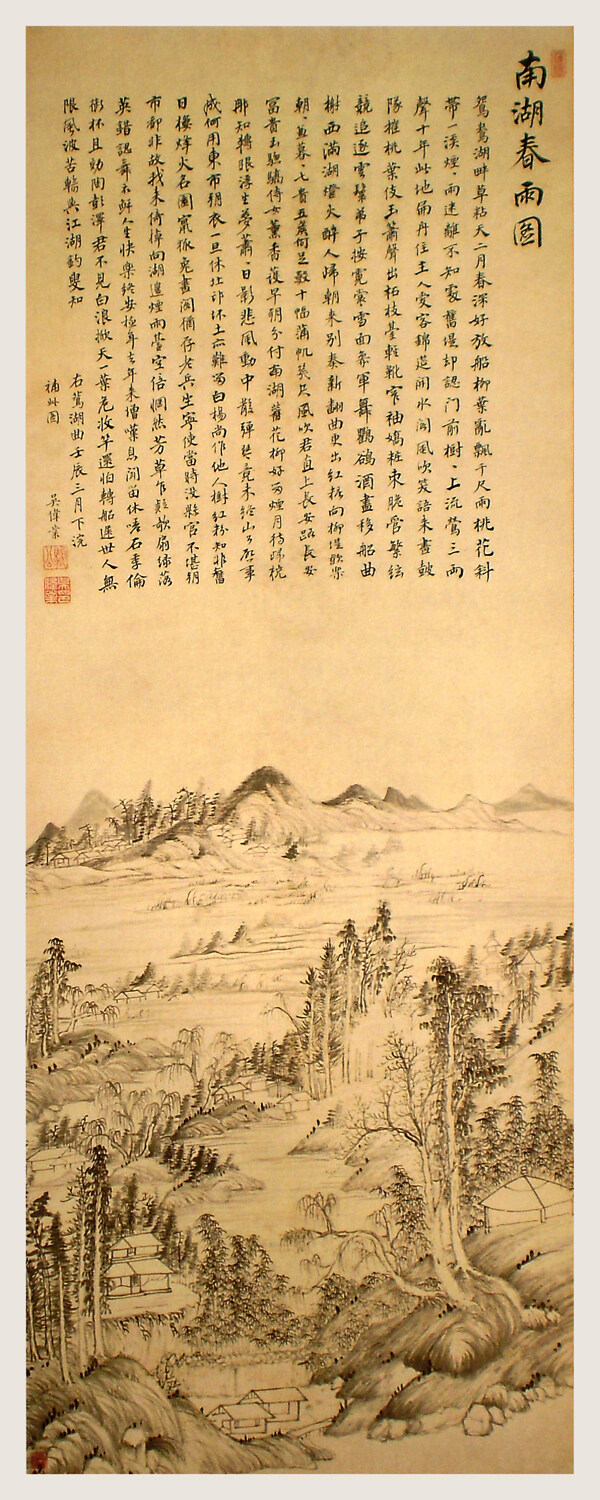 南湖春雨圖
鴛鴦湖畔草粘天二月春深好放船柳葉亂飄千尺雨桃花斜
帶一溪煙々雨迷離不知處舊堤却認門前樹々上流鶯三兩
聲十年此地扁舟住主人愛客錦筵開水閣風吹笑語來畫鼓
隊催桃葉伎玉簫聲出柘枝臺輕靴窄袖嬌粧束脆管繁絃
競追逐雲鬟弟子按霓裳雪面參軍舞鸜鵒酒盡移船曲
榭西滿湖燈火醉人歸朝來別奏新翻曲更出紅粧向柳堤歡樂
朝々兼暮々七貴五侯何足數十幅蒲帆幾尺風吹君直上長安路長安
富貴玉驄驕侍女薰香護早朝分付南湖舊花柳好留煙月待歸橈
那知轉眼浮生夢蕭々日影悲風動中散彈琴竟未終山公啓事
成何用東市朝衣一旦休北邙坏土亦難留白楊尚作他人樹紅粉知非舊
日樓烽火名園竄狐兔畫閣猶存老兵寧使當時沒縣官不堪朝
市都非故我來倚棹向湖邊煙雨臺空倍惘然芳草乍疑歌扇綠落
英錯認舞衣鮮人生快樂終安極年去年來增嘆息聞笛休嗟石季倫
銜杯且効陶彭澤君不見白浪掀天一葉危收竿還怕轉船遲世人無
限風波苦輸與江湖釣叟知
右鴛湖曲壬辰三月下浣
補此圖
吳偉業